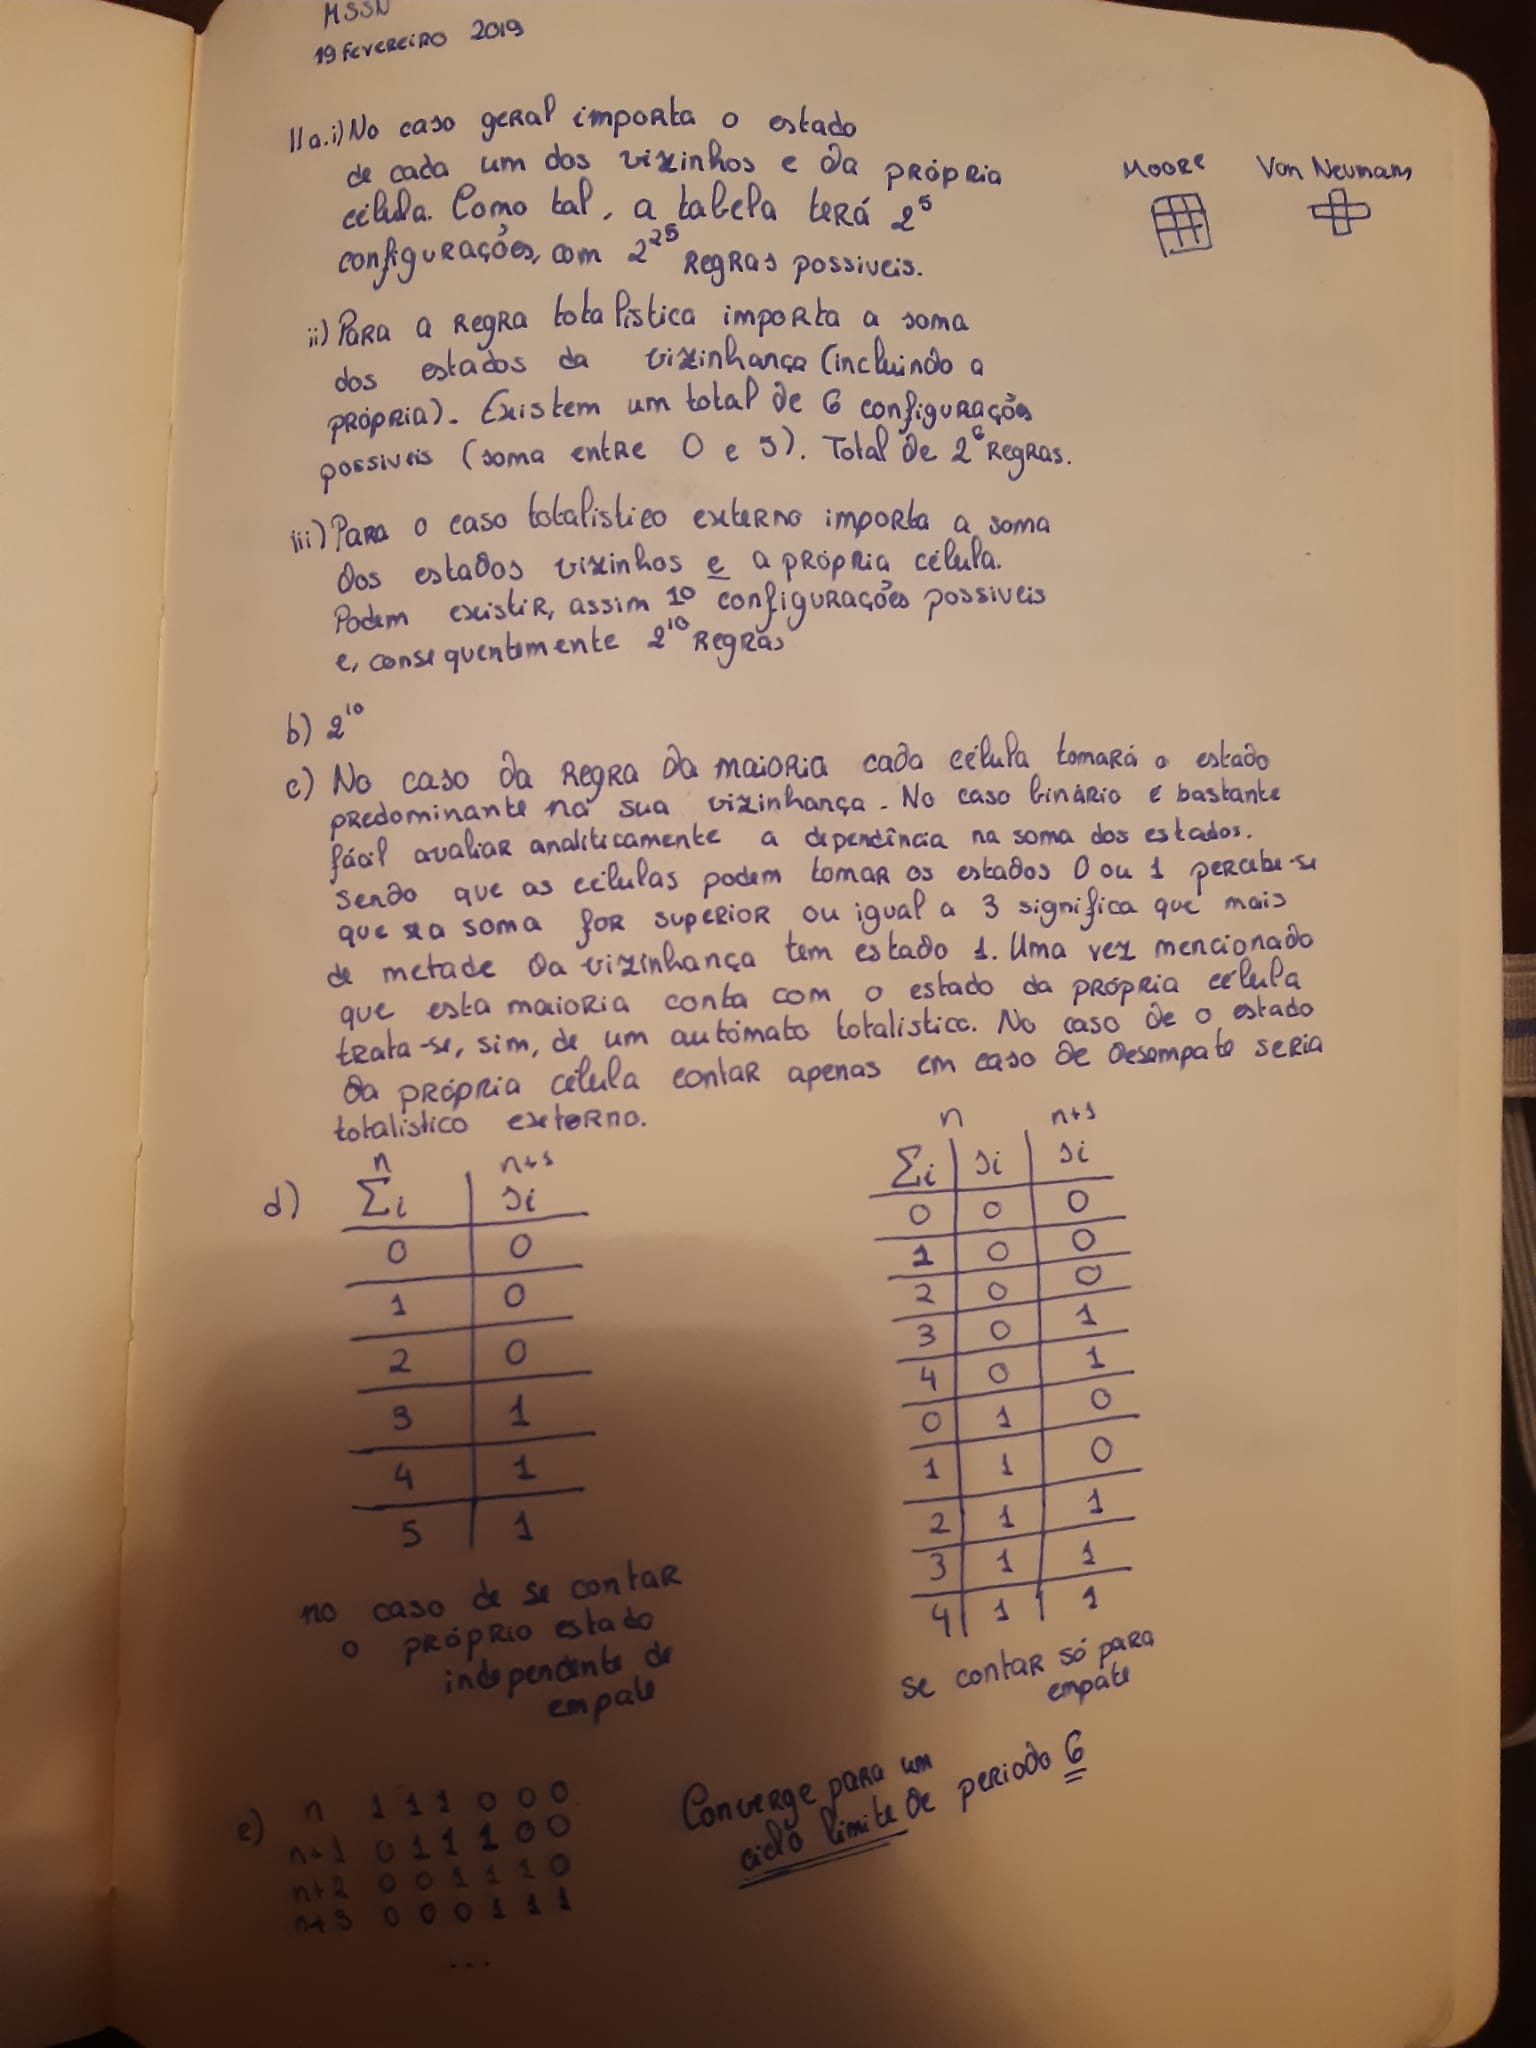 MSSN
19 Fevereiro 2019
11a.i) No caso geral importa o estado
de cada um dos vizinhos e da própria
célula. Como tal, a tabela terá 2^5
configurações, com 2^2^5 regras possiveis.
Moore
Von Neumam
ii) Para a regra totalística importa a soma
dos estados da vizinhança (incluindo a
própria). Existem um total de 6 configurações
possiveis (soma entre 0 e 5). Total de 2^6 regras.
iii) Para o caso totalístico externo importa a soma
dos estados vizinhos e a própria célula.
Podem existir, assim 10 configurações possiveis
e, consequentemente 2^10 regras
b) 2^10
c) No caso da regra da maioria cada célula tomará o estado
predominante na sua vizinhança. No caso binário é bastante
fácil avaliar analiticamente a dependência na soma dos estados.
Sendo que as células podem tomar os estados 0 ou 1 percebe-se
que se a soma for superior ou igual a 3 significa que mais
de metade da vizinhança tem estado 1. Uma vez mencionado
que esta maioria conta com o estado da própria célula
trata-se, sim, de um autómato totalístico. No caso de o estado
da própria célula contar apenas em caso de desempate seria
totalístico externo.
d)
n n+1
Σi si
0 0
1 0
2 0
3 1
4 1
5 1
no caso de se contar
o próprio estado
independente de
empate
n n+1
Σi si si
0 0 0
1 0 0
2 0 0
3 0 1
4 0 1
0 1 0
1 1 0
2 1 1
3 1 1
4 1 1
se contar só para
empate
e) n 1 1 1 0 0 0
n+1 0 1 1 1 0 0
n+2 0 0 1 1 1 0
n+3 0 0 0 1 1 1
...
Converge para um
ciclo limite de periodo 6